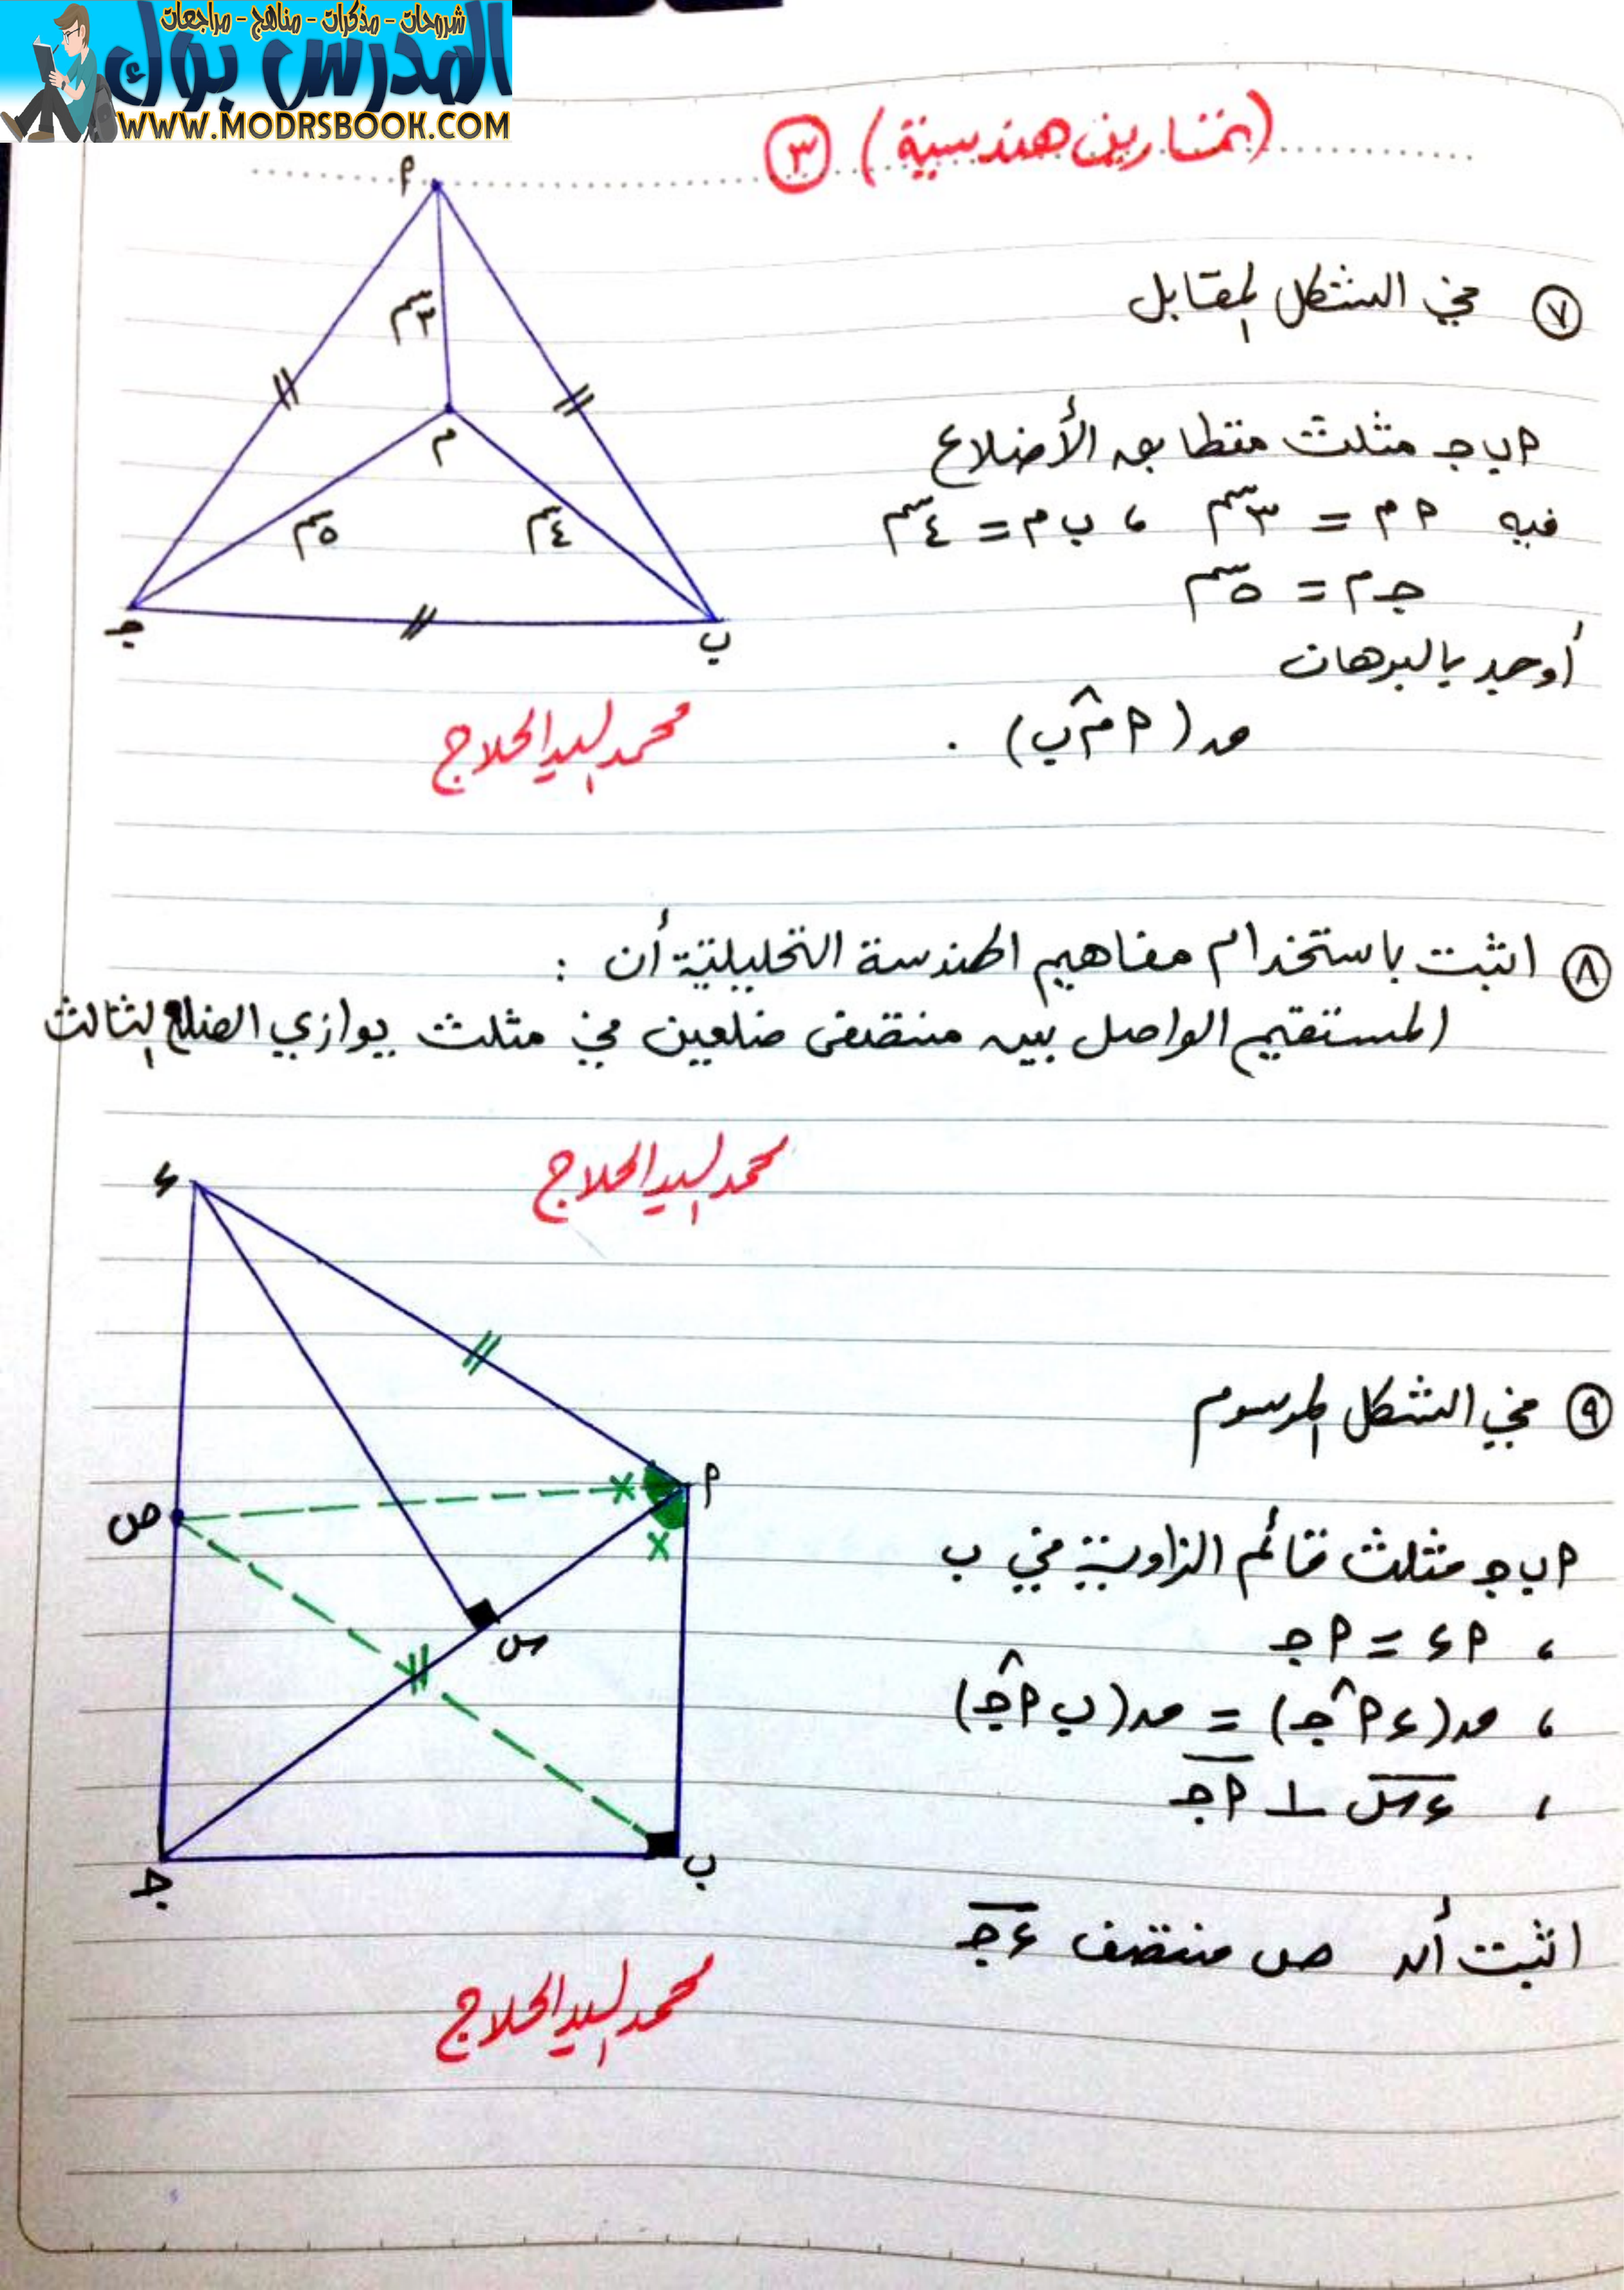 شروحات - مذكرات - مناهج - مراجعات
المدرس بوك
WWW.MODRSBOOK.COM
(تمارين هندسية) ٣
٧ في الشكل المقابل
أ ب جـ مثلث متطابق الأضلاع
فيه أ م = ٣ سم ، ب م = ٤ سم
جـ م = ٥ سم
أوجد بالبرهان
ق(أ م̂ ب) .
أ
٣ سم
م
٥ سم
٤ سم
جـ
ب
محمد السيد الحلاج
٨ اثبت باستخدام مفاهيم الهندسة التحليلية أن :
المستقيم الواصل بين منتصفى ضلعين في مثلث يوازي الضلع الثالث
محمد السيد الحلاج
٩ في الشكل المرسوم
أ ب جـ مثلث قائم الزاوية في ب
، أ ء = أ جـ
، ق(ء أ̂ جـ) = ق(ب أ̂ جـ)
، ء س ⊥ أ جـ
اثبت أن ص منتصف ء جـ
ء
أ
ص
×
×
س
جـ
ب
محمد السيد الحلاج